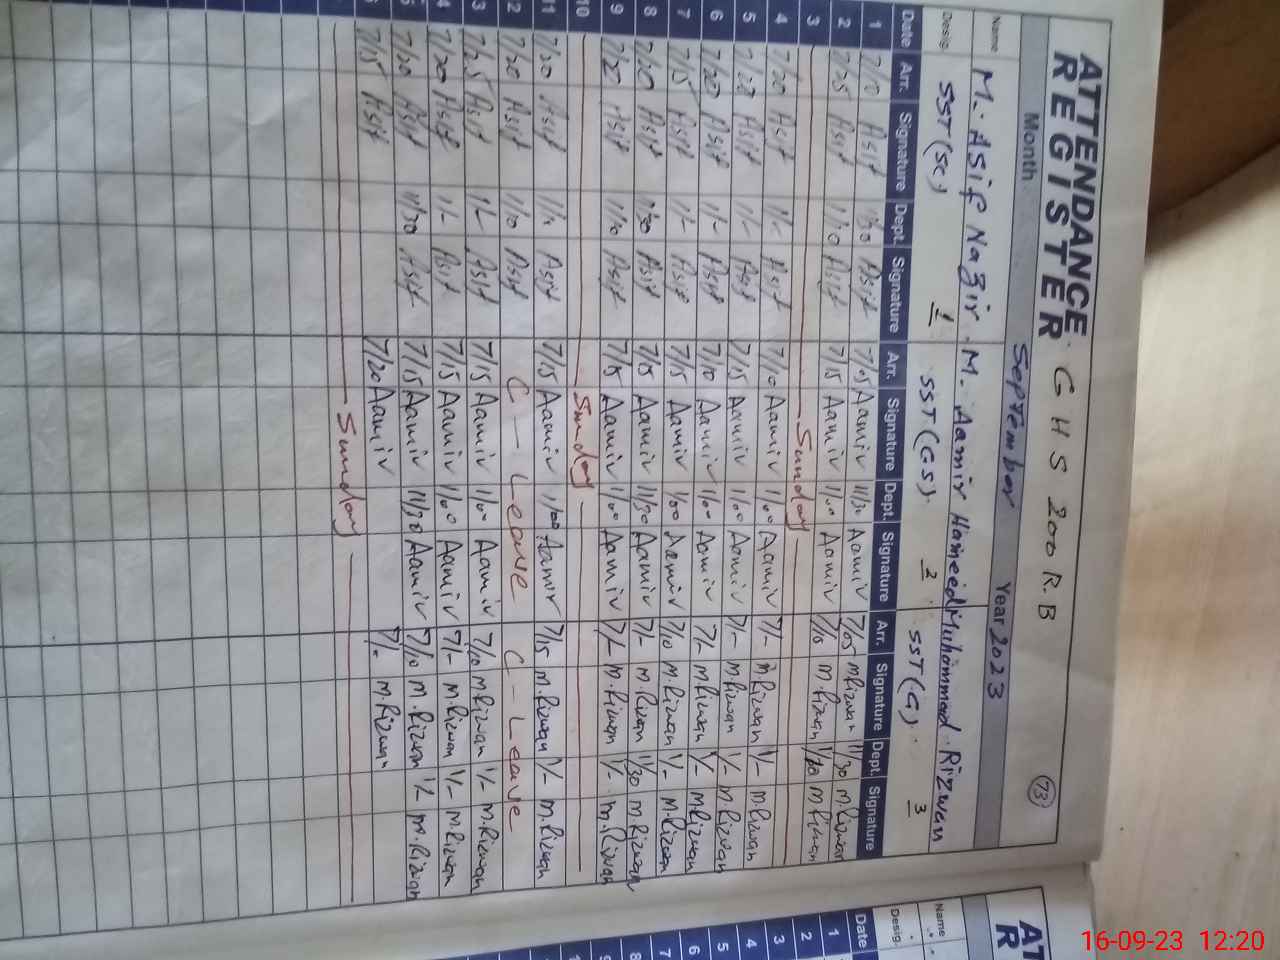 ATTENDANCE REGISTER G H S 200 R.B 73
Month September Year 2023
Name M. Asif Nazir M. Aamir Hameed Muhammad Rizwan
Desig. SST (Sc) 1 SST (GS) 2 SST (G) 3
Date Arr. Signature Dept. Signature Arr. Signature Dept. Signature Arr. Signature Dept. Signature
1 Asif 1/30 Asif 7/05 Aamir 11/30 Aamir 7/05 M Rizwan 11/30 M.Rizwan
2 7/25 Asif 1/10 Asif 7/15 Aamir 1/00 Aamir 7/10 M.Rizwan M.Rizwan
3 Sunday
4 7/20 Asif 1/- Asif 7/10 Aamir 1/00 Aamir 7/- M.Rizwan 1/- M.Rizwan
5 Asif 1/- Asif 7/15 Aamir 1/00 Aamir 7/- M.Rizwan 1/- M Rizwan
6 7/20 Asif 1/- Asif 7/10 Aamir 1/00 Aamir 7/- M.Rizwan 1/- M.Rizwan
7 7/15 Asif 1/- Asif 7/15 Aamir 1/00 Aamir 7/10 M.Rizwan 1/- M.Rizwan
8 7/20 Asif Asif 7/15 Aamir 11/30 Aamir 7/- M.Rizwan 11/30 M.Rizwan
9 7/20 Asif 1/10 Asif 7/15 Aamir 1/00 Aamir 7/- M.Rizwan 1/- M.Rizwan
10 Sunday
11 7/20 Asif Asif 7/15 Aamir 1/00 Aamir 7/15 M.Rizwan 1/- M.Rizwan
12 7/20 Asif 1/10 Asif C - Leave C - Leave
3 7/25 Asif 1/- Asif 7/15 Aamir 1/00 Aamir 7/10 M.Rizwan 1/- M.Rizwan
4 7/20 Asif 1/- Asif 7/15 Aamir 1/00 Aamir 7/- M.Rizwan 1/- M.Rizwan
7/20 Asif 11/30 Asif 7/15 Aamir 11/30 Aamir 7/10 M.Rizwan 1/- M.Rizwan
7/15 Asif 7/20 Aamir 7/- M.Rizwan
Sunday
AT
R
Name
Desig.
Date
1
2
3
4
5
6
7
8
9
16-09-23 12:20